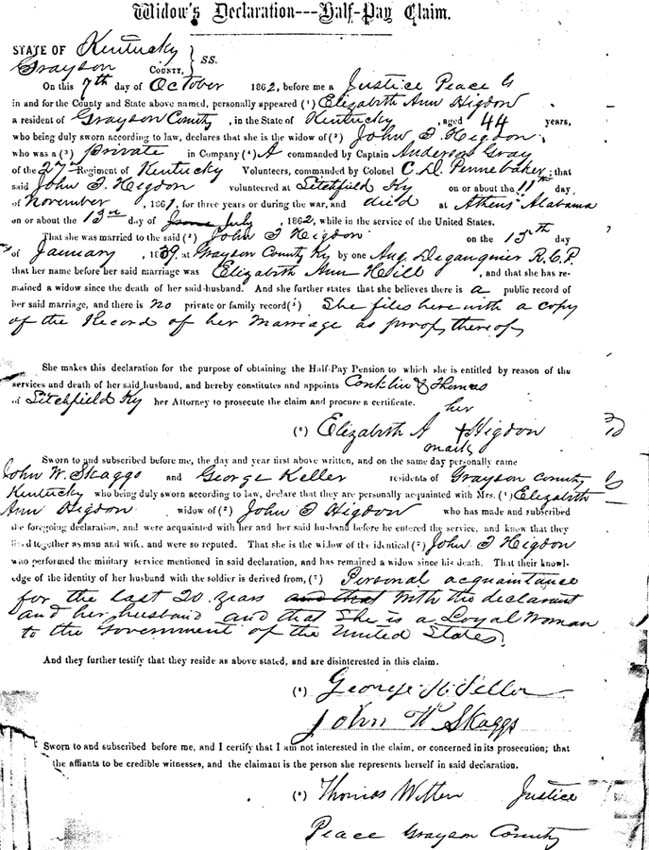 Widow's Declaration---Half-Pay Claim.
STATE OF Kentucky
Grayson COUNTY, } SS.
On this 7th day of October 1862, before me a Justice Peace
in and for the County and State above named, personally appeared (¹) Elizabeth Ann Higdon
a resident of Grayson County, in the State of Kentucky, aged 44 years,
who being duly sworn according to law, declares that she is the widow of (²) John T Higdon,
who was a (³) private in Company (⁴) A commanded by Captain Anderson Gray
of the 27th Regiment of Kentucky Volunteers, commanded by Colonel C. D. Pennebaker; that
said John T. Higdon volunteered at Litchfield Ky on or about the 11th day
of November, 1861, for three years or during the war, and died at Athens Alabama
on or about the 13th day of June July, 1862, while in the service of the United States.
That she was married to the said (²) John T Higdon on the 15th day
of January, 1839, at Grayson County Ky by one Aug. Degauquier R.C.P.
that her name before her said marriage was Elizabeth Ann Hill, and that she has re-
mained a widow since the death of her said husband. And she further states that she believes there is a public record of
her said marriage, and there is no private or family record(⁵) She files here with a copy
of the Record of her Marriage as proof thereof
She makes this declaration for the purpose of obtaining the Half-Pay Pension to which she is entitled by reason of the
services and death of her said husband, and hereby constitutes and appoints Conklin & Thomas
of Litchfield Ky her Attorney to prosecute the claim and procure a certificate.
her
(⁶) Elizabeth A + Higdon
mark
Sworn to and subscribed before me, the day and year first above written, and on the same day personally came
John W. Skaggs and George Keller residents of Grayson County
Kentucky who being duly sworn according to law, declare that they are personally acquainted with Mrs. (¹) Elizabeth
Ann Higdon widow of (²) John T Higdon who has made and subscribed
the foregoing declaration, and were acquainted with her and her said husband before he entered the service, and know that they
lived together as man and wife, and were so reputed. That she is the widow of the identical (²) John T Higdon
who performed the military service mentioned in said declaration, and has remained a widow since his death. That their knowl-
edge of the identity of her husband with the soldier is derived from, (⁷) Personal acquaintance
for the last 20 years and that with the declarant
and her husband and that She is a Loyal Woman
to the Government of the United States.
And they further testify that they reside as above stated, and are disinterested in this claim.
(⁸) George Keller
John W Skaggs
Sworn to and subscribed before me, and I certify that I am not interested in the claim, or concerned in its prosecution; that
the affiants to be credible witnesses, and the claimant is the person she represents herself in said declaration.
(⁹) Thomas Witten Justice
Peace Grayson County